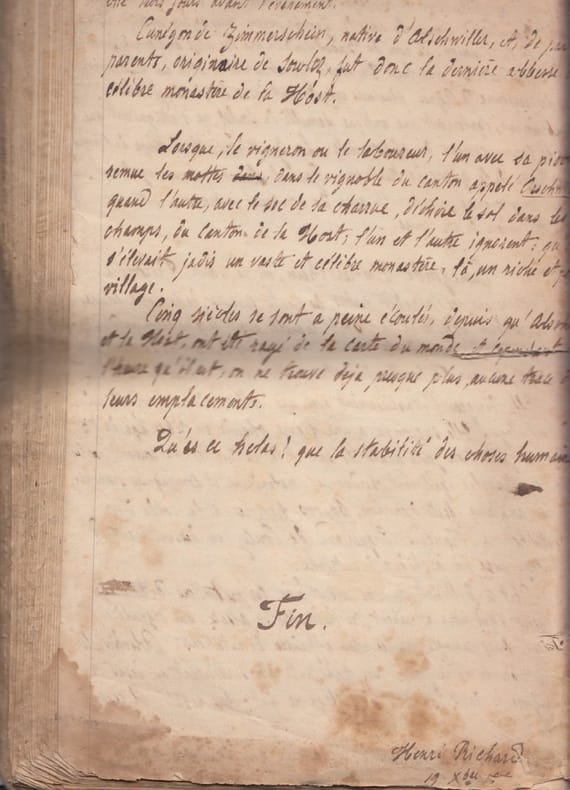 trois jours avant l'événement.
Cunégonde Zimmerschein, native d'Alschwiller, et, de
parents, originaire de Soultz, fut donc la dernière abbesse
célèbre monastère de la Höst.
Lorsque, le vigneron ou le laboureur, l'un avec sa
remue les mottes dans, dans le vignoble du canton appelé
quand l'autre, avec le soc de la charrue, déchire le sol dans les
champs, du canton de la Host; l'un et l'autre ignorent:
s'élevait jadis un vaste et célèbre monastère, là, un riche et
village.
Cinq siècles se sont a peine écoulés, depuis qu'
et la Höst, ont été rayé de la carte du monde, et cependant
l'heure qu'il est, on ne trouve déja presque plus, aucune trace
leurs emplacements.
Qu'es ce helas! que la stabilité des choses
Fin.
Henri Richard
19 Xbre